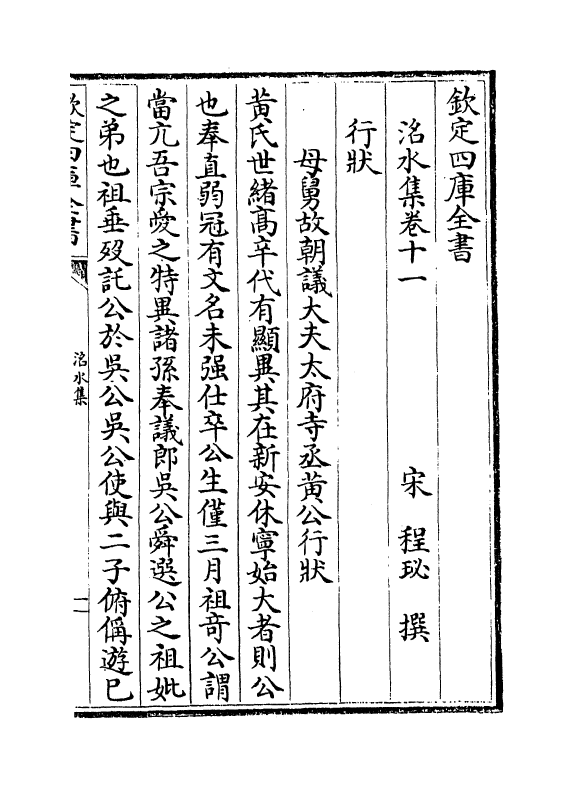 欽定四庫全書
洺水集卷十一　宋　程珌　撰
行狀
母舅故朝議大夫太府寺丞黄公行狀
黄氏世緒髙卒代有顯異其在新安休寧始大者則公
也奉直弱冠有文名未强仕卒公生僅三月祖竒公謂
當亢吾宗愛之特異諸孫奉議郎吳公舜選公之祖妣
之弟也祖垂歿託公於吳公吳公使與二子俯偁遊已
欽定四庫全書
洺水集
一